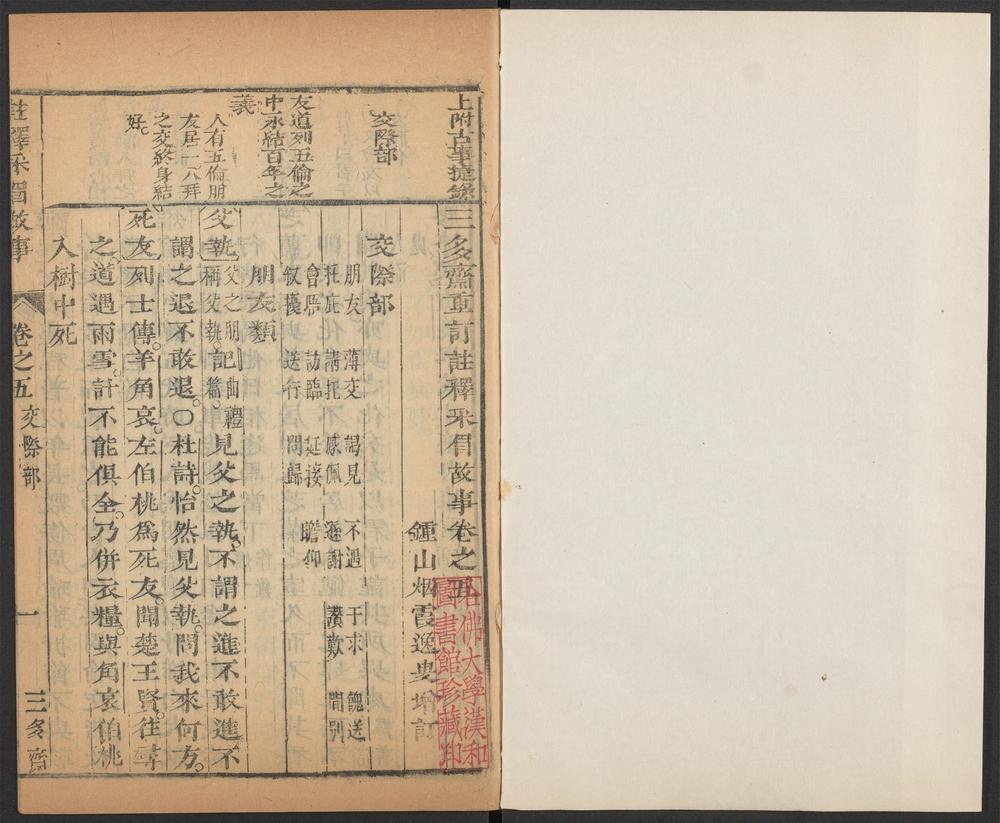 上附古事捷錄
交際部
友道列五倫之
中永結百年之
義
人有五倫朋
友居一八拜
之交終身結
好。
三多齋重訂註釋采眉故事卷之五
鍾山烟霞逸叟增訂
交際部
朋友 薄交 謁見 不遇 干求 餽送
枉庇 請托 感佩 遜謝 讚歎 間別
會唔 訪臨 延接 瞻仰
叙擾 送行 問歸
朋友類
父執父之朋稱父執。記曲禮篇。見父之執。不謂之進不敢進不
謂之退不敢退。○杜詩。怡然見父執。問我來何方。
死友列士傳。羊角哀。左伯桃為死友。聞楚王賢。往尋
之。道遇雨雪。計不能俱全。乃併衣糧。與角哀。伯桃
入樹中死
註釋采眉故事
卷之五 交際部
一
三多齋
哈佛大學漢和
圖書館珍藏印